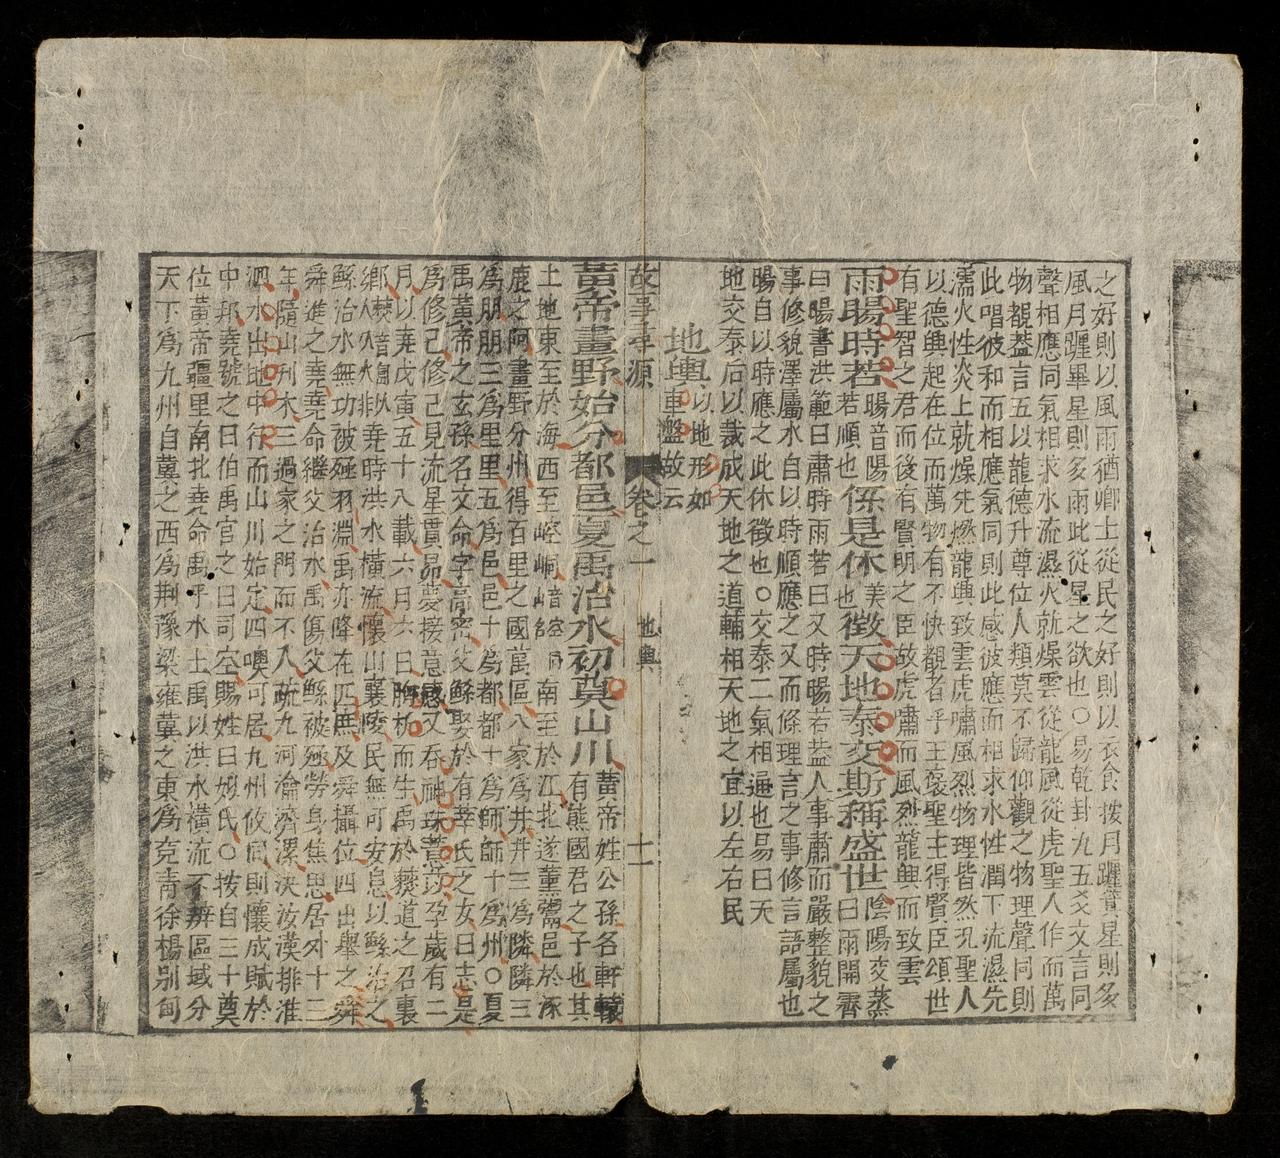 之好則以風雨猶卿士從民之好則以衣食按月躔箕星則多
風月躔畢星則多雨此從星之欲也○易乾卦九五爻文言同
聲相應同氣相求水流濕火就燥雲從龍風從虎聖人作而萬
物覩蓋言五以龍德升尊位人類莫不歸仰觀之物理聲同則
此唱彼和而相應氣同則此感彼應而相求水性潤下流濕先
濡火性炎上就燥先燃龍興致雲虎嘯風烈物理皆然況聖人
以德興起在位而萬物有不快觀者乎王褒聖主得賢臣頌世
有聖智之君而後有賢明之臣故虎嘯而風烈龍興而致雲
雨暘時若暘音陽若順也係是休美也徵天地泰交斯稱盛世陰陽交蒸曰雨開霽
曰暘書洪範曰肅時雨若曰又時暘若蓋人事肅而嚴整貌之
事修貌澤屬水自以時順應之又而條理言之事修言語屬也
暘自以時應之此休徵也○交泰二氣相通也易曰天
地交泰后以裁成天地之道輔相天地之宜以左右民
地輿以地形如車盤故云
故事尋源 卷之一 地輿 十一
黃帝畫野始分都邑夏禹治水初奠山川黃帝姓公孫名軒轅有熊國君之子也其
土地東至於海西至崆峒崆音空 南至於江北逐薰鬻邑於涿
鹿之阿畫野分州得百里之國萬區八家爲井井三爲隣隣三
爲朋朋三爲里里五爲邑邑十爲都都十爲師師十爲州○夏
禹黃帝之玄孫名文命字高密父鯀娶於有莘氏之女曰志是
爲修己修己見流星貫昴夢接意感又吞神珠薏苡孕歲有二
月以堯戊寅五十八載六月六日胸坼而生禹於僰道之石裏
鄉 堯時洪水橫流懷山襄陵民無可安息以鯀治之
鯀治水無功被殛羽淵禹亦降在匹庶及舜攝位四出舉之舜
舜進之堯堯命繼父治水禹傷父鯀被殛勞身焦思居外十三
年隨山刋木三過家之門而不入疏九河瀹濟漯決汝漢排淮
泗水出地中行而山川始定四隩可居九州攸同則懷成賦於
中邦堯號之曰伯禹官之曰司空賜姓曰姒氏○按自三十奠
位黃帝疆里南北堯命禹平水土禹以洪水橫流不辨區域分
天下爲九州自冀之西爲荆豫梁雍冀之東爲兗靑徐楊别自